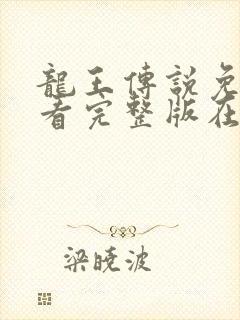 龍王傳説免
看完整版在
梁曉波